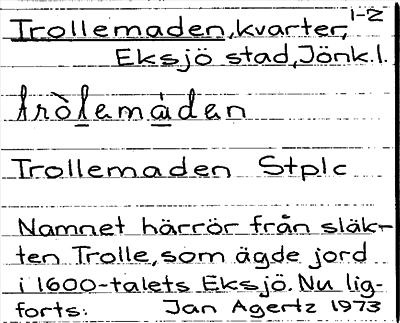 1-2
Trollemaden, kvarter,
Eksjö stad, Jönk.l.
tròlemàden
Trollemaden Stplc
Namnet härrör från släk-
ten Trolle, som ägde jord
i 1600-talets Eksjö. Nu lig-
forts. Jan Agertz 1973